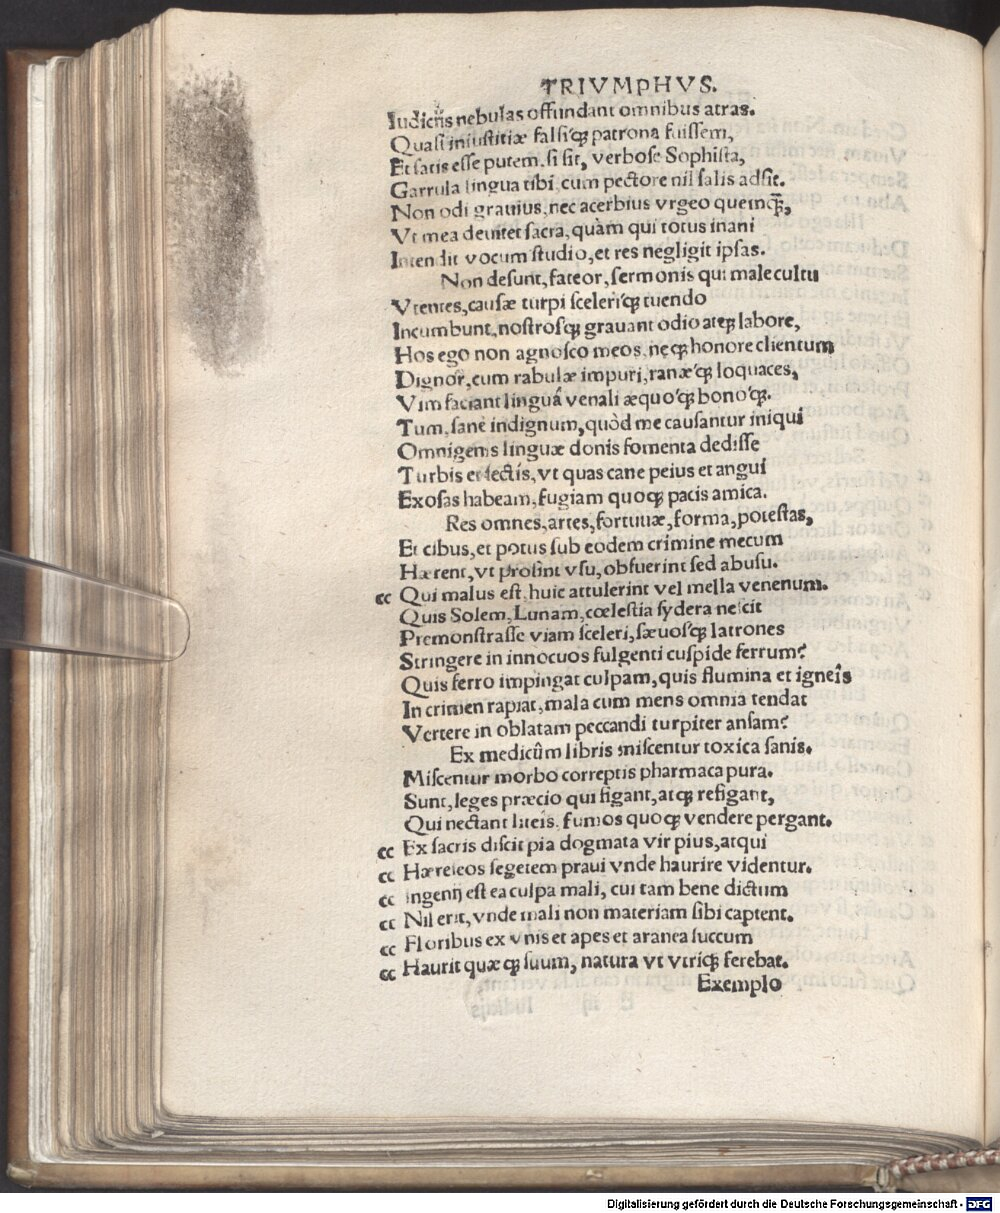 TRIVMPHVS.
Iudicijs nebulas offundant omnibus atras.
Quasi iniustitiæ falsiq́ꝫ patrona fuissem,
Et satis esse putem. si sit, verbose Sophista,
Garrula lingua tibi, cum pectore nil salis adsit.
Non odi grauius, nec acerbius vrgeo quemq̃ꝫ,
Vt mea deuitet sacra, quàm qui totus inani
Intendit vocum studio, et res negligit ipsas.
Non desunt, fateor, sermonis qui male cultu
Vtentes, causæ turpi scelerisq́ꝫ tuendo
Incumbunt, nostrosq́ꝫ grauant odio atqꝫ labore,
Hos ego non agnosco meos, neqꝫ honore clientum
Dignor, cum rabulæ impuri, ranæq́ꝫ loquaces,
Vim faciant linguâ venali æquoq́ꝫ bonoq́ꝫ.
Tum, sanè indignum, quòd me causantur iniqui
Omnigenis linguæ donis fomenta dedisse
Turbis et sectis, vt quas cane peius et angui
Exosas habeam, fugiam quoqꝫ pacis amica.
Res omnes, artes, fortunæ, forma, potestas,
Et cibus, et potus sub eodem crimine mecum
Hærent, vt prosint vsu, obfuerint sed abusu.
cc Qui malus est, huic attulerint vel mella venenum.
Quis Solem, Lunam, cœlestia sydera nescit
Premonstrasse viam sceleri, sæuosq́ꝫ latrones
Stringere in innocuos fulgenti cuspide ferrum?
Quis ferro impingat culpam, quis flumina et igneîs
In crimen rapiat, mala cum mens omnia tendat
Vertere in oblatam peccandi turpiter ansam?
Ex medicûm libris miscentur toxica sanis.
Miscentur morbo correptis pharmaca pura.
Sunt, leges præcio qui figant, atqꝫ refigant,
Qui nectant liteis. fumos quoqꝫ vendere pergant.
cc Ex sacris discit pia dogmata vir pius, atqui
cc Hæreleos segetem praui vnde haurire videntur.
cc Ingenij est ea culpa mali, cui tam bene dictum
cc Nil erit, vnde mali non materiam sibi captent.
cc Floribus ex vnis et apes et aranea succum
cc Haurit quæqꝫ suum, natura vt vtriq́ꝫ ferebat.
Exemplo
Digitalisierung gefördert durch die Deutsche Forschungsgemeinschaft - DFG